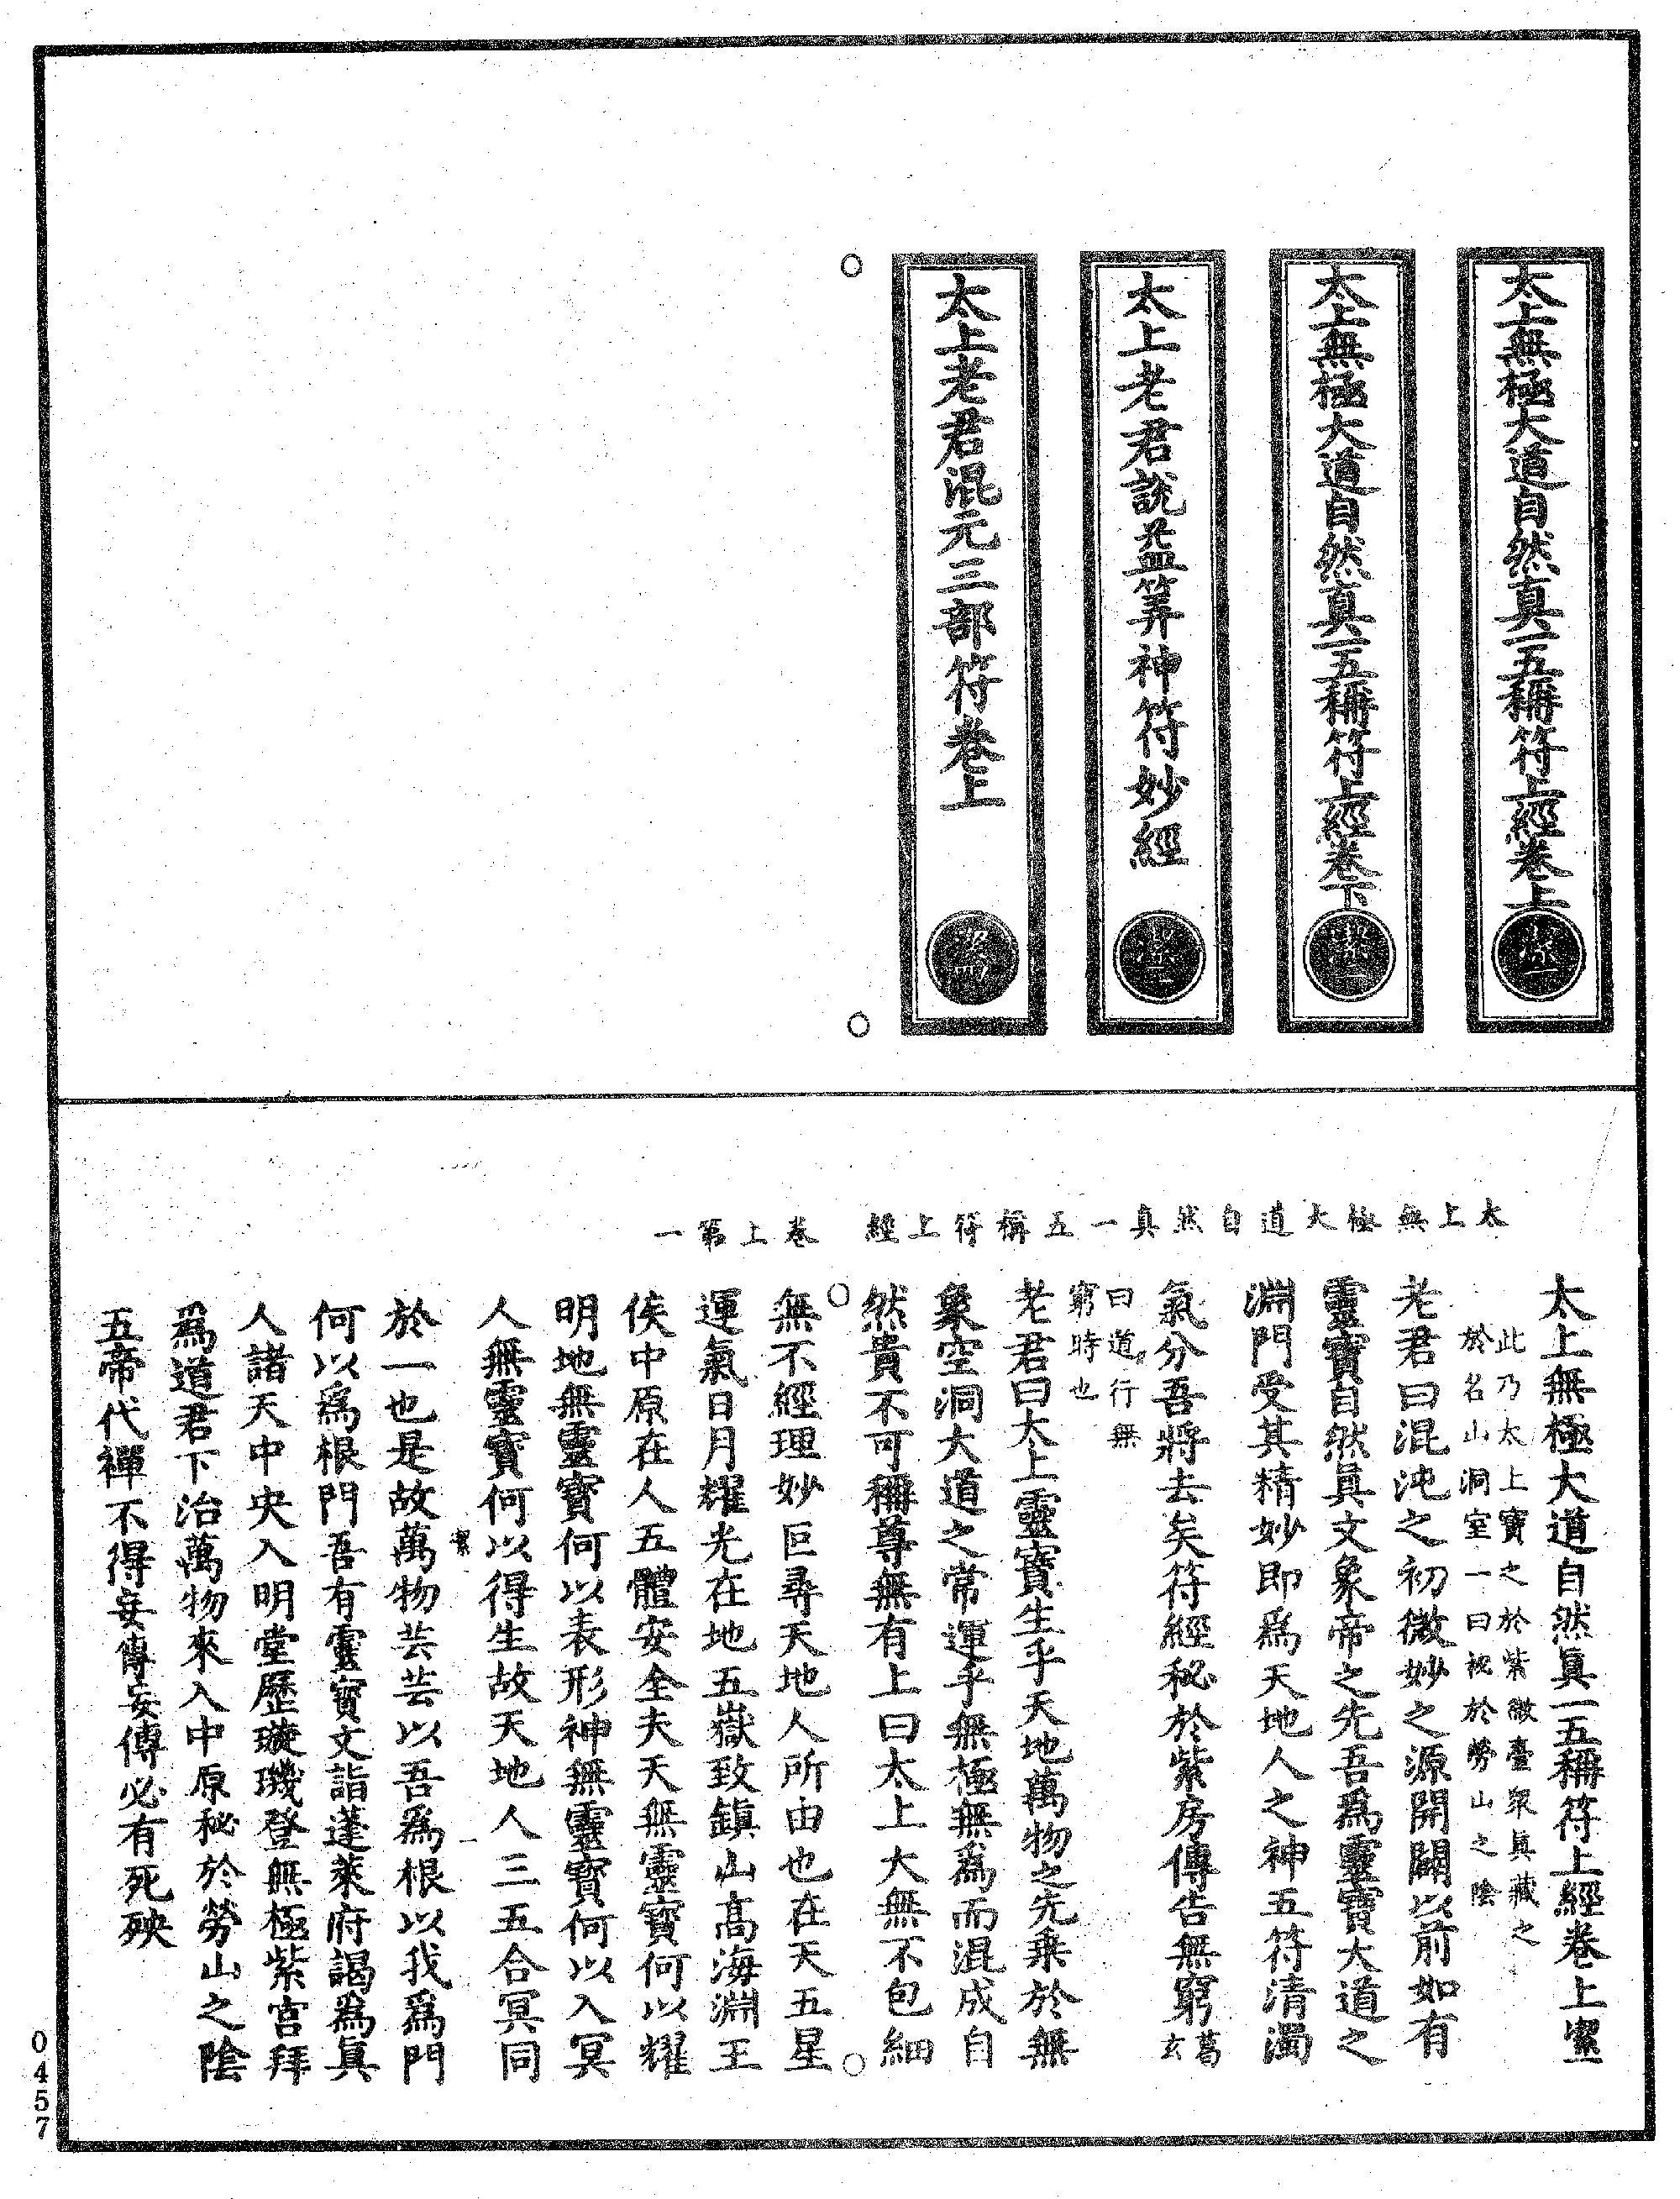 太上無極大道自然真一五稱符上經卷上
太上無極大道自然真一五稱符上經卷下
太上老君說益筭神符妙經
太上老君混元三部符卷上
太上無極大道自然真一五稱符上經 卷上第一
太上無極大道自然真一五稱符上經卷上 潔一
此乃太上寶之於紫微臺衆真藏之
於名山洞室一曰祕於勞山之陰
老君曰混沌之初微妙之源開闢以前如有
靈寶自然真文象帝之先吾爲靈寶大道之
淵門受其精妙即爲天地人之神五符清濁
氣分吾將去矣符經秘於紫房傳告無窮葛玄
曰道行無
窮時也
老君曰太上靈寶生乎天地萬物之先乘於無
象空洞大道之常運乎無極無爲而混成自
然貴不可稱尊無有上曰太上大無不包細
無不經理妙巨尋天地人所由也在天五星
運氣日月耀光在地五嶽致鎮山高海淵王
侯中原在人五體安全夫天無靈寶何以耀
明地無靈寶何以表形神無靈寶何以入冥
人無靈寶何以得生故天地人三五合冥同
於一也是故萬物芸芸以吾爲根以我爲門
何以爲根門吾有靈寶文詣蓬萊府謁爲真
人諸天中央入明堂歷璇璣登無極紫宫拜
爲道君下治萬物來入中原秘於勞山之陰
五帝代禪不得妄傳妄傳必有死殃
0457